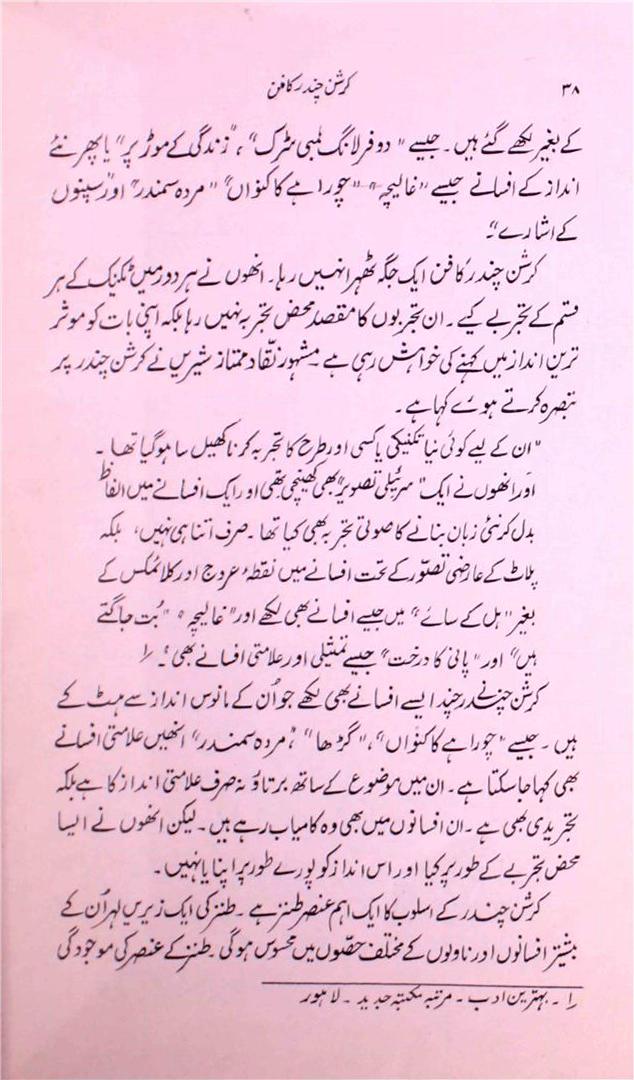 ۳۸
کرشن چندر کا فن
کے بغیر لکھے گئے ہیں۔ جیسے "دو فرلانگ لمبی سڑک"، "زندگی کے موڑ پر" یا پھر نئے
انداز کے افسانے جیسے "غالیچہ" "چوراہے کا کنواں" "مردہ سمندر" اور "سپنوں
کے اشارے"۔
کرشن چندر کا فن ایک جگہ ٹھہرا نہیں رہا۔ انھوں نے ہر دور میں ٹکنیک کے ہر
قسم کے تجربے کیے۔ ان تجربوں کا مقصد محض تجربہ نہیں رہا بلکہ اپنی بات کو موثر
ترین انداز میں کہنے کی خواہش رہی ہے۔ مشہور نقّاد ممتاز شیریں نے کرشن چندر پر
تبصرہ کرتے ہوئے کہا ہے۔
"ان کے لیے کوئی نیا تکنیکی یا کسی اور طرح کا تجربہ کرنا کھیل سا ہو گیا تھا۔
اور انھوں نے ایک "سرئیلی تصویر" بھی کھینچی تھی اور ایک افسانے میں الفاظ
بدل کر نئی زبان بنانے کا صوتی تجربہ بھی کیا تھا۔ صرف اتنا ہی نہیں، بلکہ
پلاٹ کے عارضی تصوّر کے تحت افسانے میں نقطۂ عروج اور کلائمکس کے
بغیر "ہل کے سائے" میں جیسے افسانے بھی لکھے اور "غالیچہ" "بُت جاگتے
ہیں" اور "پانی کا درخت" جیسے تمثیلی اور علامتی افسانے بھی"۔ ۱
کرشن چندر نے چند ایسے افسانے بھی لکھے جو اُن کے مانوس انداز سے ہٹ کے
ہیں۔ جیسے "چوراہے کا کنواں"، "گڑھا"، "مردہ سمندر" انھیں علامتی افسانے
بھی کہا جا سکتا ہے۔ ان میں موضوع کے ساتھ برتاؤ نہ صرف علامتی انداز کا ہے بلکہ
تجریدی بھی ہے۔ ان افسانوں میں بھی وہ کامیاب رہے ہیں۔ لیکن انھوں نے ایسا
محض تجربے کے طور پر کیا اور اس انداز کو پورے طور پر اپنایا نہیں۔
کرشن چندر کے اسلوب کا ایک اہم عنصر طنز ہے۔ طنز کی ایک زیریں لہر اُن کے
بیشتر افسانوں اور ناولوں کے مختلف حصّوں میں محسوس ہوگی۔ طنز کے عنصر کی موجودگی
۱۔ بہترین ادب۔ مرتبہ مکتبۂ جدید۔ لاہور